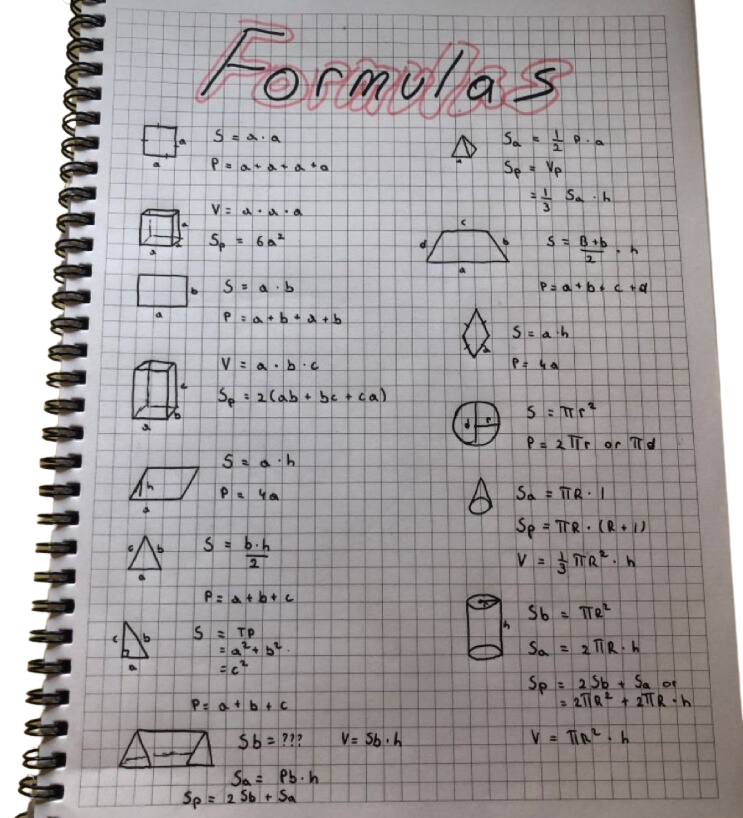 Formulas
a
a
S = a · a
P = a + a + a + a
a
a
V = a · a · a
Sp = 6a²
b
a
S = a · b
P = a + b + a + b
c
b
a
V = a · b · c
Sp = 2(ab + bc + ca)
h
a
S = a · h
P = 4a
c
b
a
S = b·h
2
P = a + b + c
c
b
a
S = TP
= a² + b²
= c²
P = a + b + c
Sb = ???
V = Sb · h
Sa = Pb · h
Sp = 2 Sb + Sa
Sa = 1/2 P · a
Sp = Vp
= 1/3 Sa · h
c
d
b
a
S = B+b/2 · h
P = a + b + c + d
a
S = a · h
P = 4a
d
r
S = πr²
P = 2πr or πd
Sa = πR · l
Sp = πR · (R + l)
V = 1/3 πR² · h
h
Sb = πR²
Sa = 2πR · h
Sp = 2 Sb + Sa or
= 2πR² + 2πR · h
V = πR² · h